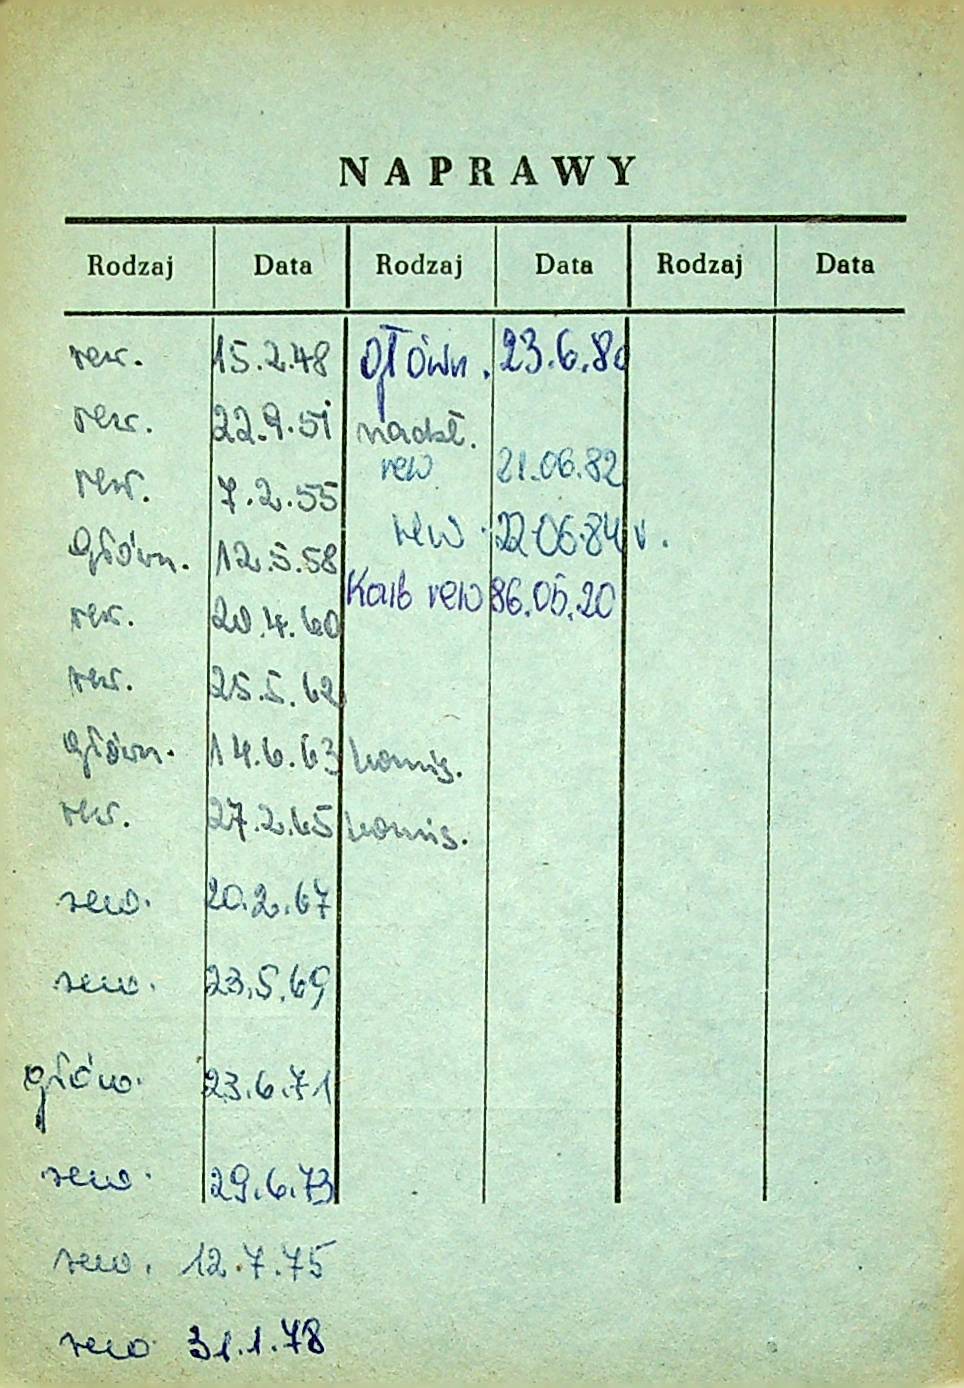 NAPRAWY
Rodzaj Data Rodzaj Data Rodzaj Data
rew. 15.2.48 główn. 23.6.80
rew. 22.9.51 nadzł.
rew. 7.2.55 rew 21.06.82
główn. 12.5.58 rew 22.06.84 r.
rew. 20.4.60 rew 86.05.20
rew. 25.5.62
główn. 14.6.63 komis.
rew. 27.2.65 komis.
rew. 20.2.67
rew. 23.5.69
głów. 23.6.71
rew. 29.6.73
rew. 12.7.75
rew 31.1.78